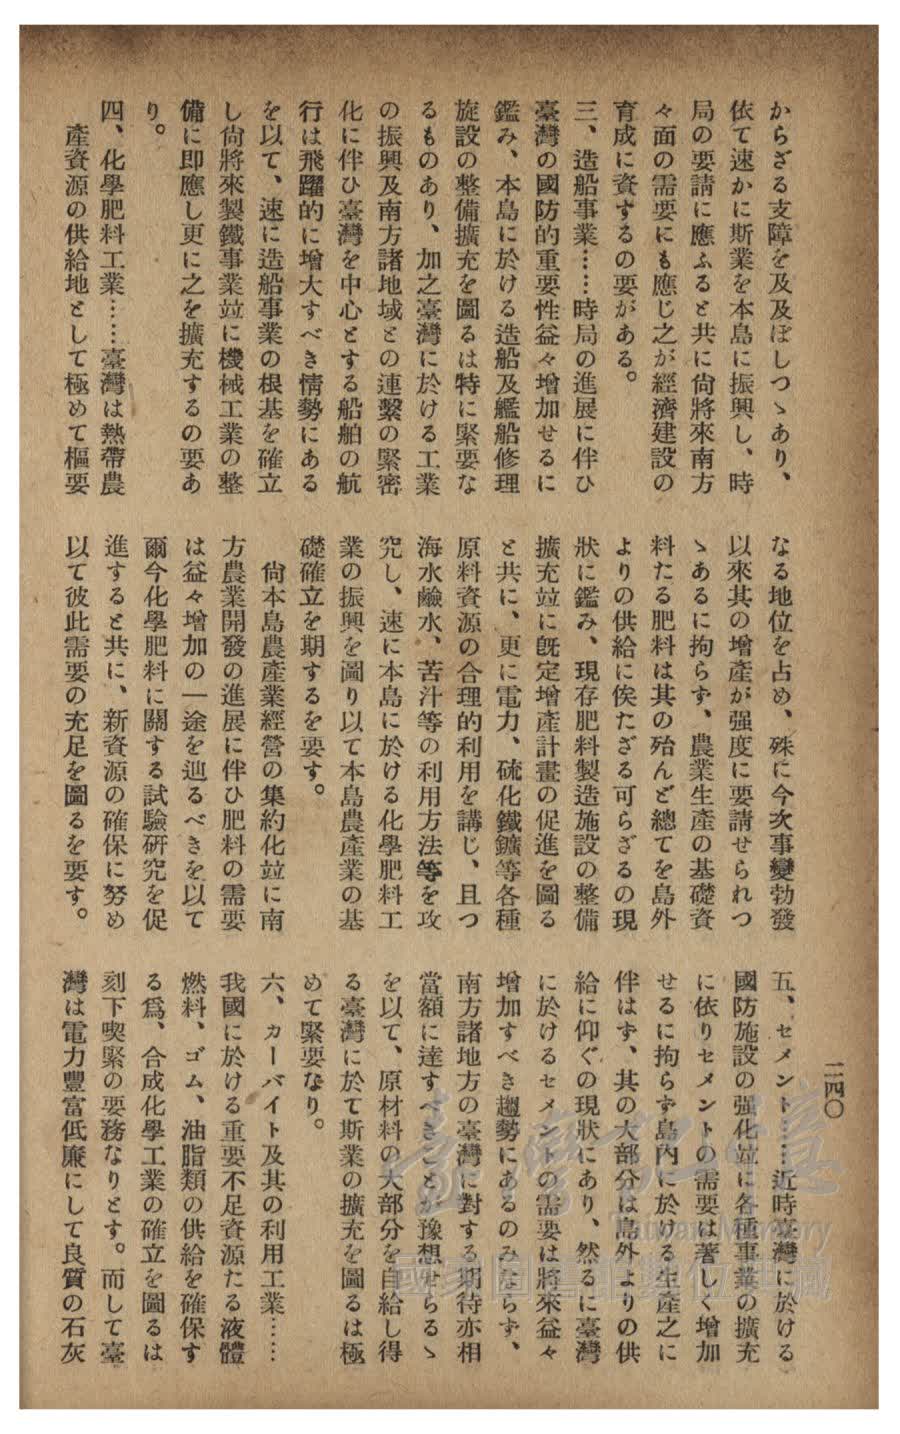 二四〇
からざる支障を及及ぼしつゝあり、
依て速かに斯業を本島に振興し、時
局の要請に應ふると共に尙將來南方
々面の需要にも應じ之が經濟建設の
育成に資するの要がある。
三、造船事業……時局の進展に伴ひ
臺灣の國防的重要性益々增加せるに
鑑み、本島に於ける造船及艦船修理
旋設の整備擴充を圖るは特に緊要な
るものあり、加之臺灣に於ける工業
の振興及南方諸地域との連繫の緊密
化に伴ひ臺灣を中心とする船舶の航
行は飛躍的に增大すべき情勢にある
を以て、速に造船事業の根基を確立
し尙將來製鐵事業竝に機械工業の整
備に即應し更に之を擴充するの要あ
り。
四、化學肥料工業……臺灣は熱帶農
產資源の供給地として極めて樞要
なる地位を占め、殊に今次事變勃發
以來其の增產が强度に要請せられつ
ゝあるに拘らず、農業生產の基礎資
料たる肥料は其の殆んど總てを島外
よりの供給に俟たざる可らざるの現
狀に鑑み、現存肥料製造施設の整備
擴充竝に旣定增產計畫の促進を圖る
と共に、更に電力、硫化鐵鑛等各種
原料資源の合理的利用を講じ、且つ
海水鹼水、苦汁等の利用方法等を攻
究し、速に本島に於ける化學肥料工
業の振興を圖り以て本島農產業の基
礎確立を期するを要す。
尙本島農產業經營の集約化竝に南
方農業開發の進展に伴ひ肥料の需要
は益々增加の一途を辿るべきを以て
爾今化學肥料に關する試驗硏究を促
進すると共に、新資源の確保に努め
以て彼此需要の充足を圖るを要す。
五、セメント……近時臺灣に於ける
國防施設の强化竝に各種事業の擴充
に依りセメントの需要は著しく增加
せるに拘らず島內に於ける生產之に
伴はず、其の大部分は島外よりの供
給に仰ぐの現狀にあり、然るに臺灣
に於けるセメントの需要は將來益々
增加すべき趨勢にあるのみならず、
南方諸地方の臺灣に對する期待亦相
當額に達すべきことが豫想せらるゝ
を以て、原材料の大部分を自給し得
る臺灣に於て斯業の擴充を圖るは極
めて緊要なり。
六、カーバイト及其の利用工業……
我國に於ける重要不足資源たる液體
燃料、ゴム、油脂類の供給を確保す
る爲、合成化學工業の確立を圖るは
刻下喫緊の要務なりとす。而して臺
灣は電力豐富低廉にして良質の石灰
臺灣記憶
Taiwan Memory
國家圖書館數位典藏